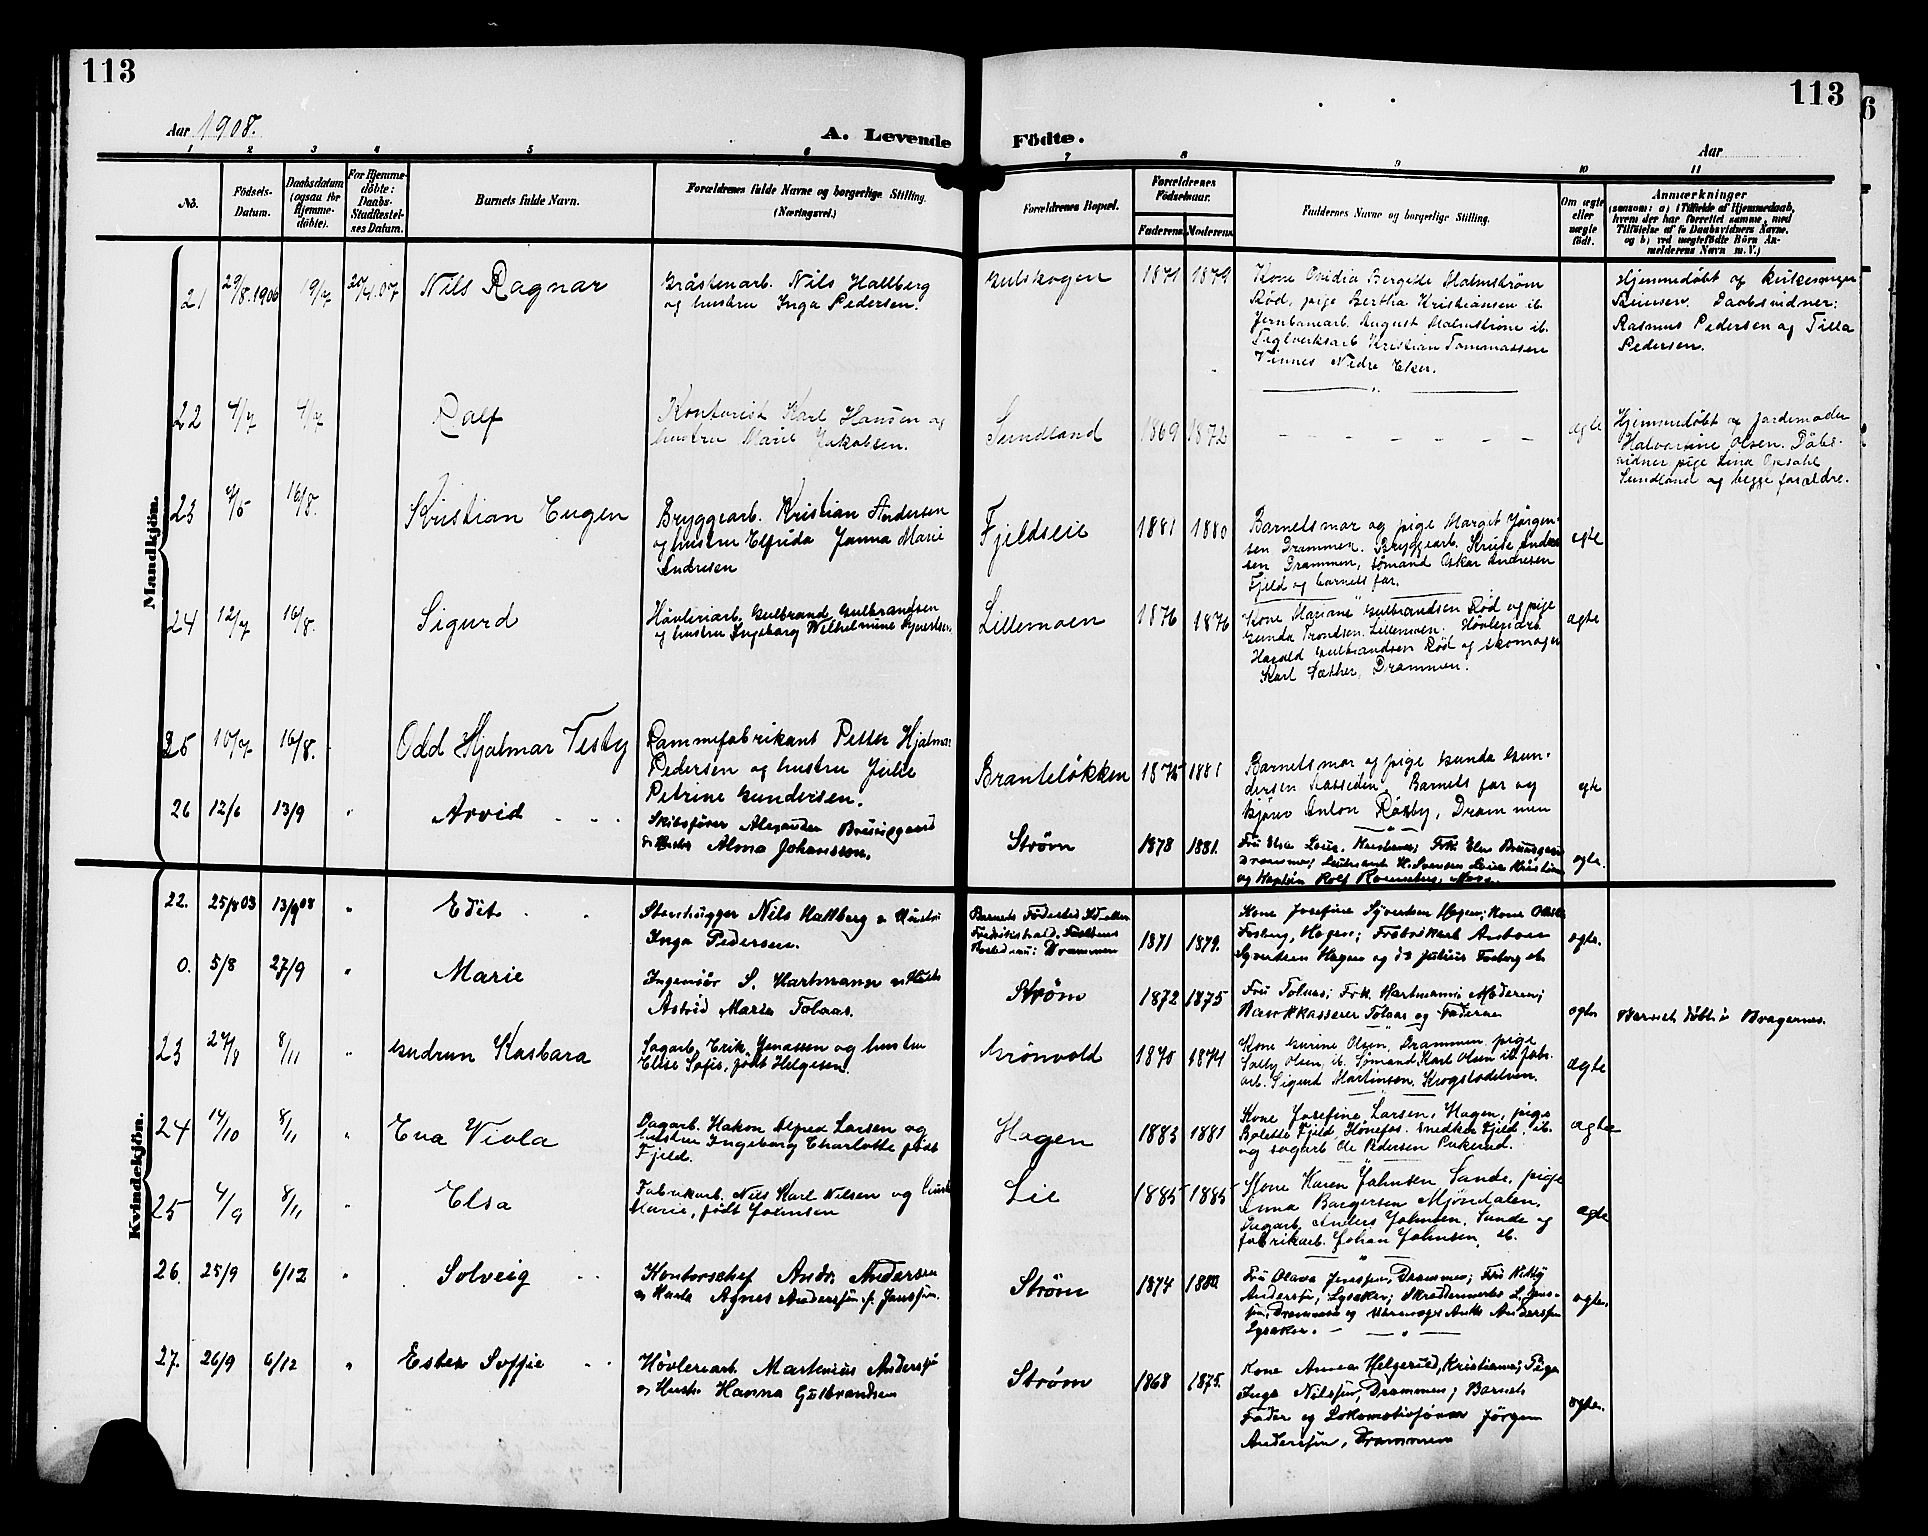 113
113
Aar 1908.
A. Levende
Födte.
Aar
1 2 3 4 5 6 7 8 9 10 11
No.
Födsels-
Datum.
Daabsdatum
(ogsaa for
Hjemme-
döbte).
For Hjemme-
döbte:
Daabs-
Stadfæstel-
ses Datum.
Barnets fulde Navn.
Forældrenes fulde Navne og borgerlige Stilling.
(Næringsvei.)
Forældrenes Bopæl.
Forældrenes
Födselsaar.
Faderens Moderens
Faddernes Navne og borgerlige Stilling.
Om ægte
eller
uægte
födt.
Anmærkninger
(saasom: a) i Tilfælde af Hjemmedaab,
hvem der har forrettet samme, med
Tilföielse af to Daabsvidners Navne,
og b) ved uægtefödte Börn An-
melderens Navn m. V.)
Mandkjön.
21 29/8.1906 19/7 20/4.07 Nils Ragnar
Gråstenarb. Nils Hallberg
og hustru Inga Pedersen.
Gulskogen 1871 1879
Kone Ovidia Bergitte Malmstrøm
Rød, pige Bertha Kristiansen ib.
Jernbanearb. August Malmstrøm ib.
Teglverksarb. Kristian Tommassen
Vinnes Nedre Eker.
Hjemmedøbt af
Daabsvidner:
Rasmus Pedersen og Tilla
Pedersen.
22 4/7 4/7 Ralf
Kontorist Karl Hansen og
hustru Marie Jakobsen.
Sundland 1869 1872
egte
Hjemmedøbt af Jordemoder
Halvardine Olsen. Dåbs-
vidner pige Lina Opsahl
Sundland og begge forældre.
23 4/5 16/8. Kristian Eugen
Bryggearb. Kristian Andersen
og hustru Elfrida Janna Marie
Andresen
Fjeldseie 1881 1880
Barnets mor og pige Margit Jørgen-
sen Drammen. Bryggearb. Kruse Andre-
sen Drammen, sømand Oskar Andresen
Fjeld og barnets far.
egte
24 12/7 16/8. Sigurd
Høvleriarb. Gulbrand Gulbrandsen
og hustru Ingeborg Wilhelmine Syvertsen
Lillemoen 1876 1876
Kone Mariane Gulbrandsen Rød og pige
Gunda Trondsen Lillemoen. Høvleriarb.
Harald Gulbrandsen Rød og skomager
Karl Sæther, Drammen.
ægte
25 10/7 16/8. Odd Hjalmar Testy
Rammefabrikant Petter Hjalmar
Pedersen og hustru Julie
Petrine Gundersen.
Branteløkken 1875 1881
Barnets mor og pige Gunda Gun-
dersen. Barnets far og
Anton Røsby, Drammen
egte
26 12/6 13/9 Arvid
Skibsfører Alexander Bruusgaard
og Hustr Alma Johansson.
Strøm 1878 1881.
Fru Elsa Frk Elsa Bruusgaard
Drammen; Leutenant H. Svensen
og Kaptein Rolf Moss.
ægte.
Kvindekjön.
22. 25/8 03 13/9 08 Edit
Stenhugger Nils Hallberg og Hustru
Inga Pedersen.
Barnets Fødested
Fredrikshald. Forældrenes
Bosted nu: Drammen
1871 1879.
Kone Josefine Syvertsen Hagen; Kone
Forberg, Hagen; Fabrikarb Anton
Syvertsen Hagen og do Julius Forberg ib.
ægte.
0. 5/8 27/9 Marie
Ingeniør S. Hartmann og Hustr
Astrid Marie Tolaas.
Strøm 1872 1875
Fru Tolaas; Frk. Hartmann; Moderen;
Bankkasserer Tolaas og Faderen
ægte
Barnet døbt i Bragernes.
23 24/8 8/11 Gudrun Kasbara
Sagarb. Erik Jonassen og hustru
Elise Sofie, født Helgesen.
Grønvold 1870 1874
Kone Gurine Olsen, Drammen, pige
Sally Olsen, ib. Sømand Karl Olsen ib. Fabr.
arb. Sigurd Martinsen, Krogstadelven.
ægte
24 14/10 8/11 Eva Viola
Dagarb. Hakon Alfred Larsen og
hustru Ingeborg Charlotte født
Fjeld.
Hagen 1883 1881
Kone Josefine Larsen, Hagen, pige
Bolette Fjeld, Hønefos. Snedker Fjeld, ib.
og sagarb. Ole Pedersen Pukerud.
ægte
25 4/9 8/11 Elsa
Fabrikarb. Nils Karl Nilsen og hustr
Marie, født Johnsen
Lie 1885 1885
Kone Karen Johnsen Sande, pige
Anna Borgersen Mjøndalen,
Dagarb. Anders Johnsen, Sande og
fabrikarb. Johan Johnsen, ib.
ægte
26. 25/9 6/12 Solveig
Kontorschef Andr. Andersen
og Hustr Agnes Anderssen f. Janssen.
Strøm 1874 1880
Fru Olava Jenssen, Drammen; Frk Kitty
Anderssen, Lysaker; Skreddermester L. Jans-
sen, Drammen og Anth. Anderssen
Lysaker.
ægte.
27. 26/9 6/12 Ester Soffie
Høvleriarb. Martinius Anderssen
og Hustr Hanna Gulbrandsen
Strøm 1868 1875.
Kone Anna Helgerud, Kristiania; Pige
Inga Nilssen, Drammen; Barnets
Fader og Lokomotivfører Jørgen
Anderssen, Drammen
ægte.